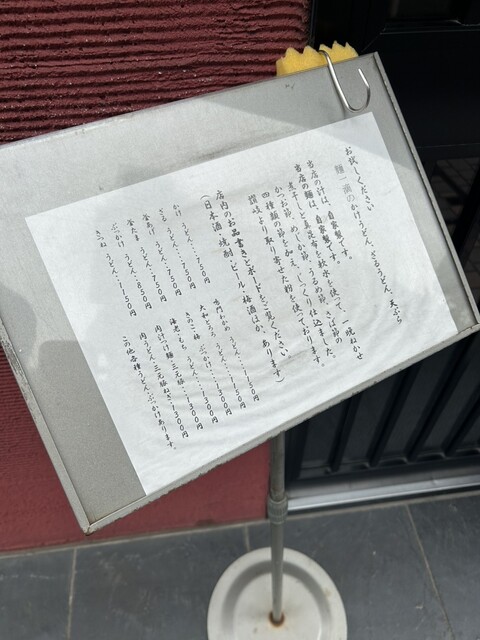 お試しください
麺一滴のかけうどん、ざるうどん、天ぷら
当店の汁は、自家製です。
当店の麺は、自家製です。
煮干しと真昆布を軟水を使って、一晩ねかせ
かつお節、めじか節、うるめ節、さば節の
四種類の節を加え、じっくり仕込ました。
讃岐より取り寄せた粉を使っております。
店内のお品書きとボードをご覧ください
(日本酒・焼酎・ビール・梅酒ほか、あります)
かけ うどん‥‥750円
ざる うどん‥‥750円
釜あげ うどん‥‥750円
釜たま うどん‥‥850円
ぶっかけ うどん‥‥850円
きつね うどん‥‥1150円
鳴門わかめ うどん‥‥1150円
大和とろろ うどん‥‥1150円
きのこ三昧 ぶっかけ‥‥1300円
海老ともち うどん‥‥1300円
肉つけ麺・三元豚‥‥1300円
肉うどん・三元豚ねぎ‥1300円
この他各種うどん・ぶっかけあります。